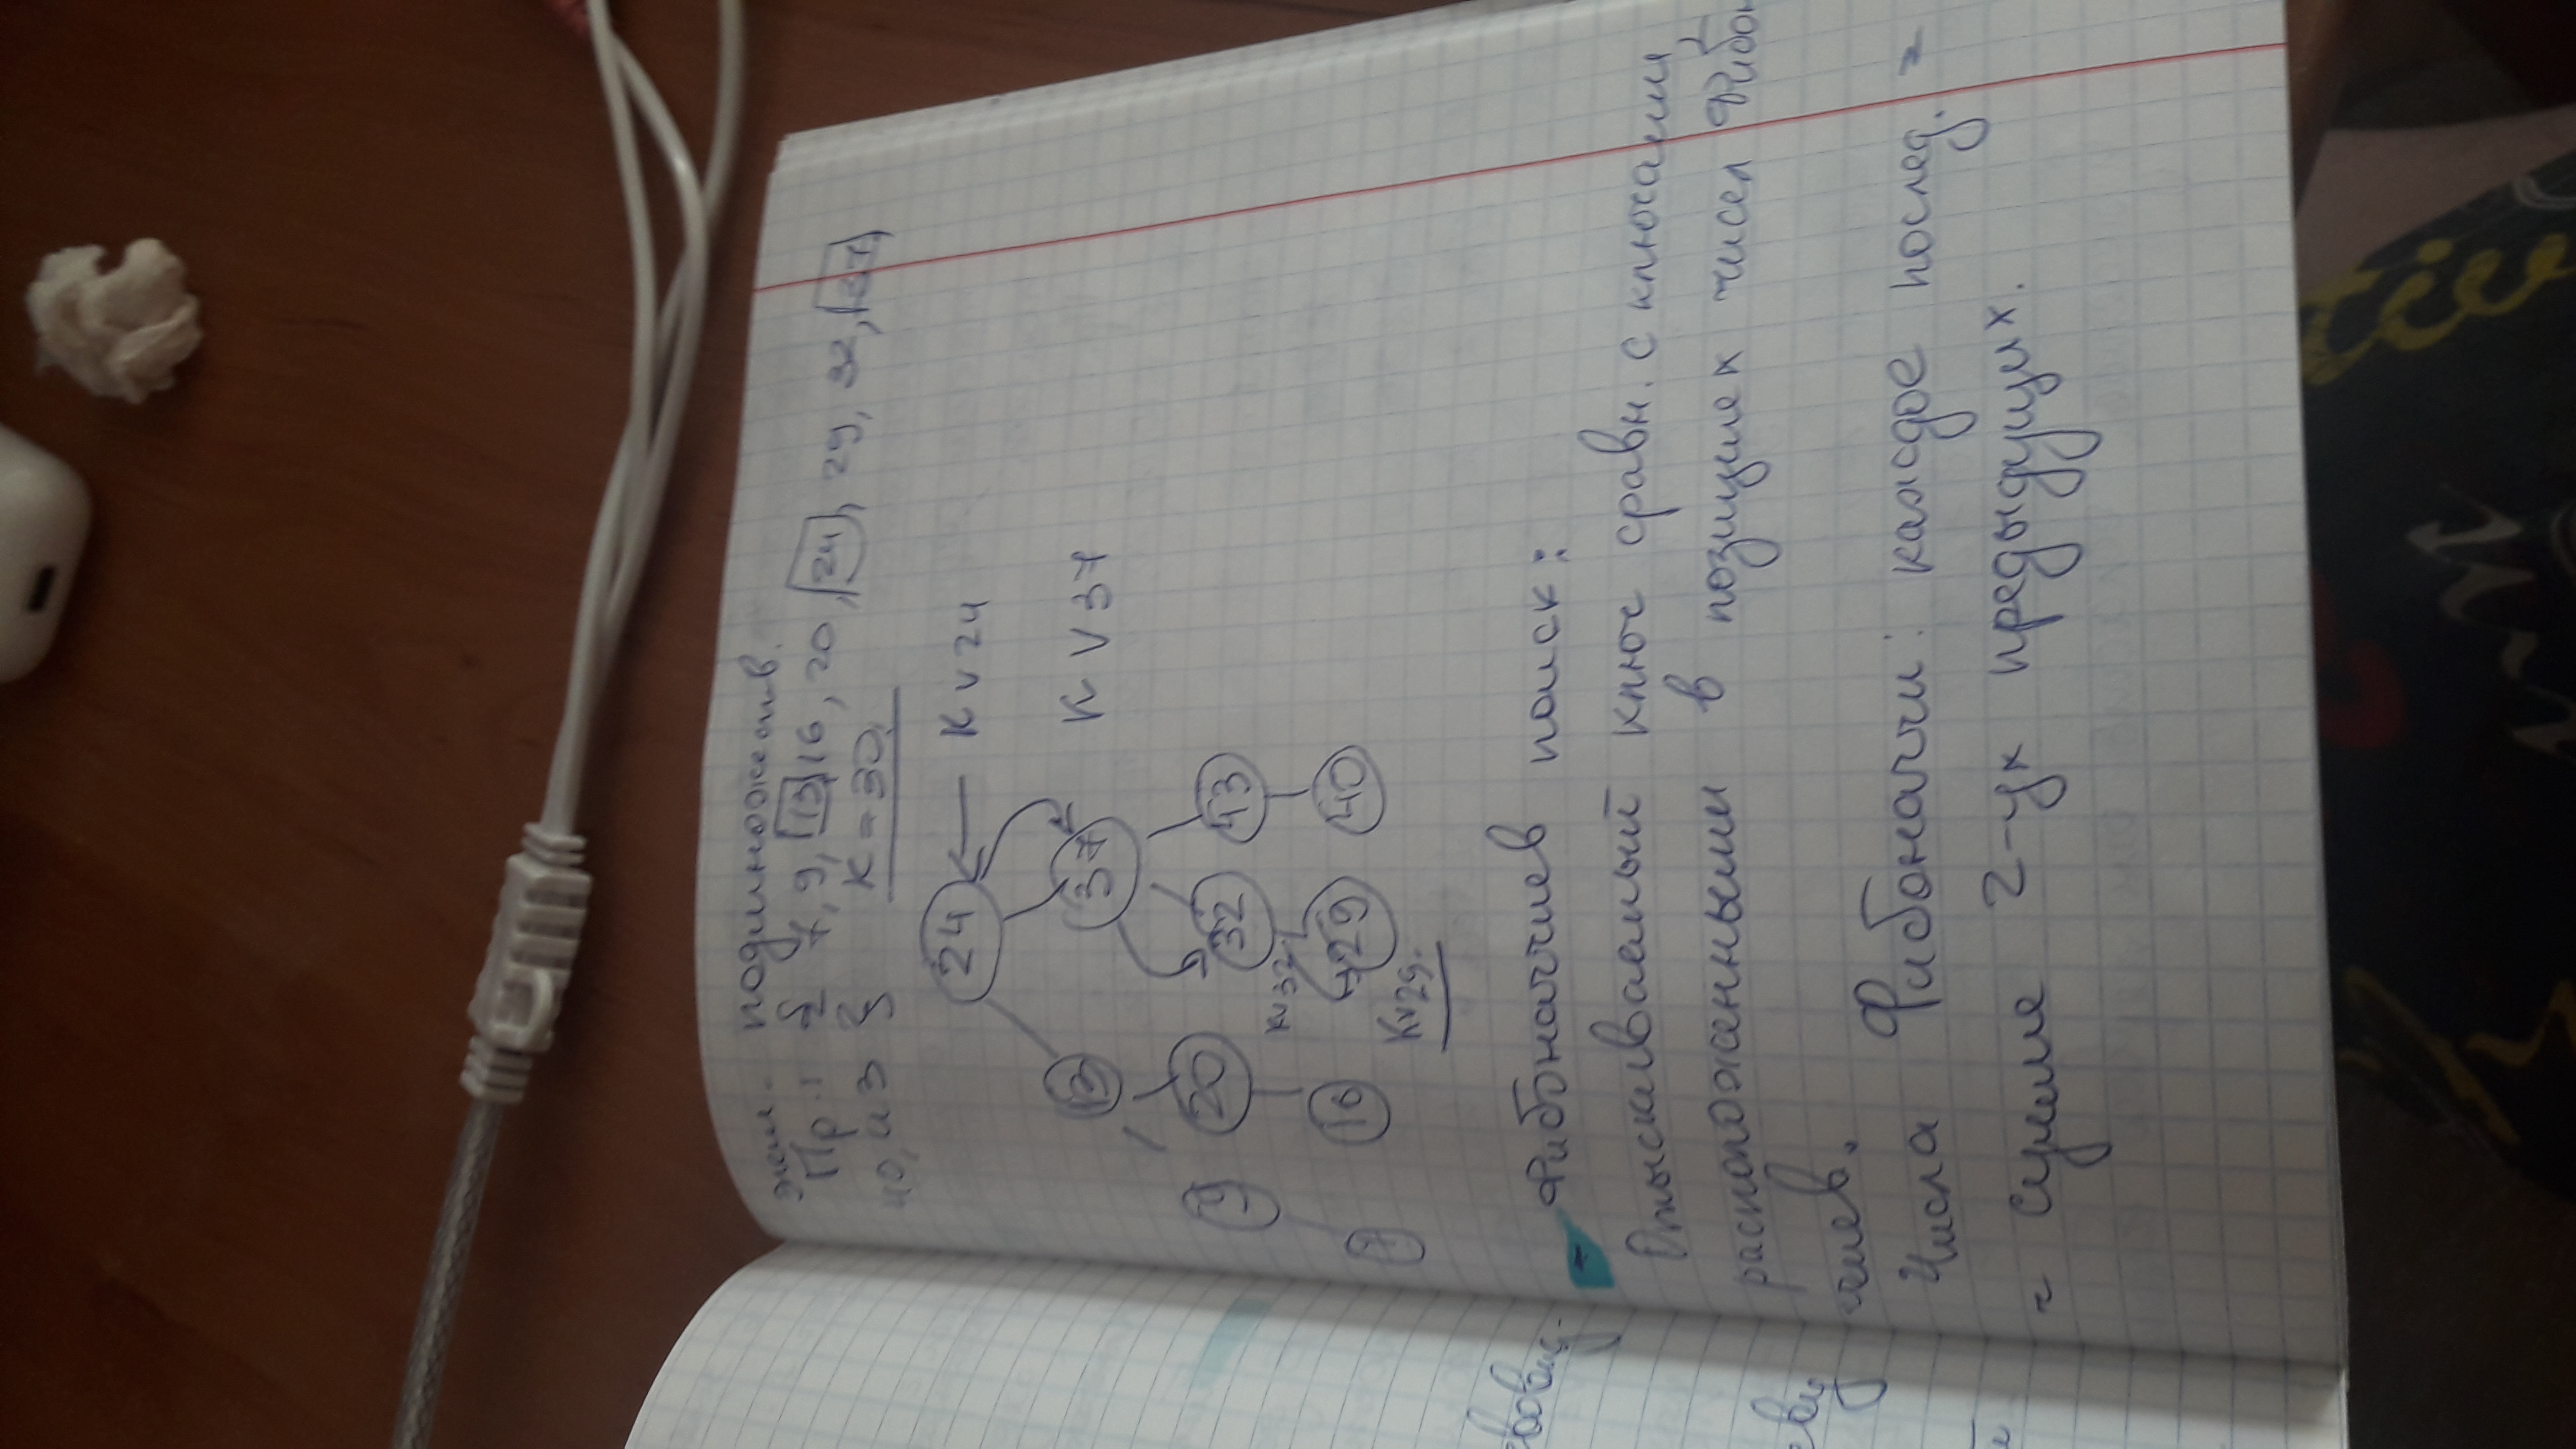 подмножеств.
Пр.: { 7, 9, 13, 16, 20, 24, 29, 32, 37,
40, 43 } K = 30.
24 K v 24
13 37 K v 37
9 20 32 43
K v 32
7 16 29 40
K v 29.
- Фибоначчиев поиск:
Отыскиваемый ключ сравн. с ключами,
расположенными в позициях чисел Фибон
чиев.
Числа Фибоначчи: каждое послед. =
= сумме 2-ух предыдущих.